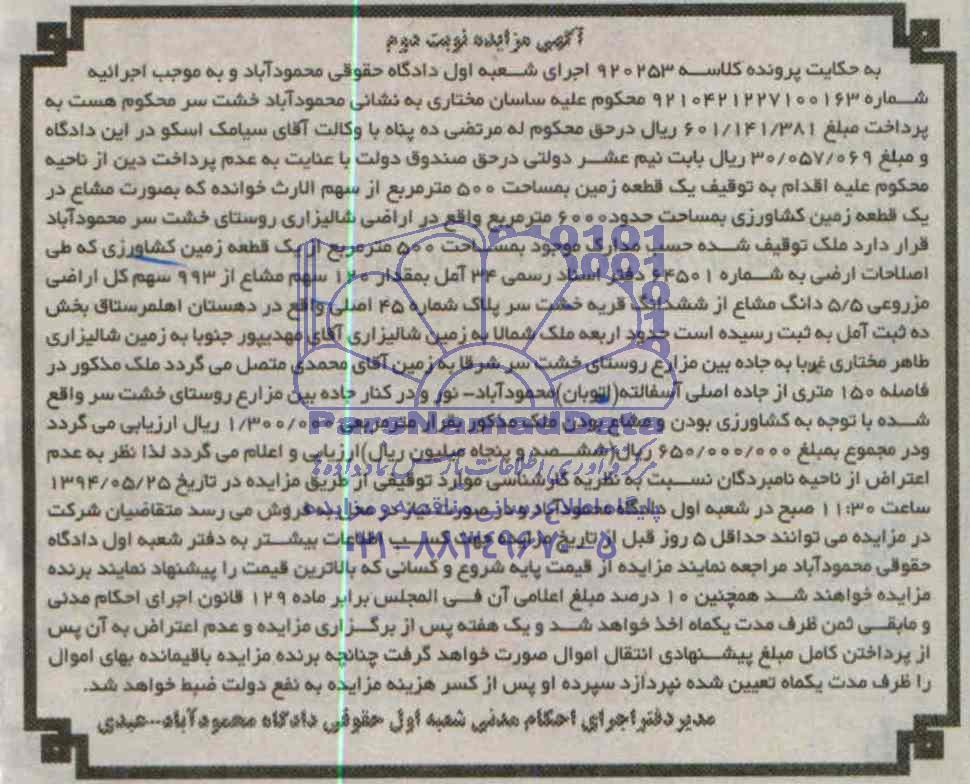 آگهی مزایده نوبت دوم
به حکایت پرونده کلاسه ۹۲۰۲۵۳ اجرای شعبه اول دادگاه حقوقی محمودآباد و به موجب اجرائیه
شماره ۹۲۱۰۴۲۱۲۲۷۱۰۰۱۶۳ محکوم علیه ساسان مختاری به نشانی محمودآباد خشت سر محکوم هست به
پرداخت مبلغ ۶۰۱/۱۴۱/۳۸۱ ریال درحق محکوم له مرتضی ده پناه با وکالت آقای سیامک اسکو در این دادگاه
و مبلغ ۳۰/۰۵۷/۰۶۹ ریال بابت نیم عشر دولتی درحق صندوق دولت با عنایت به عدم پرداخت دین از ناحیه
محکوم علیه اقدام به توقیف یک قطعه زمین بمساحت ۵۰۰ مترمربع از سهم الارث خوانده که بصورت مشاع در
یک قطعه زمین کشاورزی بمساحت حدود ۶۰۰۰ مترمربع واقع در اراضی شالیزاری روستای خشت سر محمودآباد
قرار دارد ملک توقیف شده حسب مدارک موجود بمساحت ۵۰۰ مترمربع از یک قطعه زمین کشاورزی که طی
اصلاحات ارضی به شماره ۶۴۵۰۱ دفتر اسناد رسمی ۳۴ آمل بمقدار ۱۲۰ سهم مشاع از ۹۹۳ سهم کل اراضی
مزروعی ۵/۵ دانگ مشاع از ششدانگ قریه خشت سر پلاک شماره ۴۵ اصلی واقع در دهستان اهلمرستاق بخش
ده ثبت آمل به ثبت رسیده است حدود اربعه ملک شمالا به زمین شالیزاری آقای مهدیپور جنوبا به زمین شالیزاری
طاهر مختاری غربا به جاده بین مزارع روستای خشت سر شرقا به زمین آقای محمدی متصل می گردد ملک مذکور در
فاصله ۱۵۰ متری از جاده اصلی آسفالته(اتوبان)محمودآباد- نور و در کنار جاده بین مزارع روستای خشت سر واقع
شده با توجه به کشاورزی بودن و مشاع بودن ملک مذکور بقرار مترمربعی ۱/۳۰۰/۰۰۰ ریال ارزیابی می گردد
ودر مجموع بمبلغ ۶۵۰/۰۰۰/۰۰۰ ریال(ششصد و پنجاه میلیون ریال)ارزیابی و اعلام می گردد لذا نظر به عدم
اعتراض از ناحیه نامبردگان نسبت به نظریه کارشناسی موارد توقیفی از طریق مزایده در تاریخ ۱۳۹۴/۰۵/۲۵
ساعت ۱۱:۳۰ صبح در شعبه اول دادگاه محمودآباد و در صورت نیاز در محل به فروش می رسد متقاضیان شرکت
در مزایده می توانند حداقل ۵ روز قبل از تاریخ مزایده جهت کسب اطلاعات بیشتر به دفتر شعبه اول دادگاه
حقوقی محمودآباد مراجعه نمایند مزایده از قیمت پایه شروع و کسانی که بالاترین قیمت را پیشنهاد نمایند برنده
مزایده خواهند شد همچنین ۱۰ درصد مبلغ اعلامی آن فی المجلس برابر ماده ۱۲۹ قانون اجرای احکام مدنی
و مابقی ثمن ظرف مدت یکماه اخذ خواهد شد و یک هفته پس از برگزاری مزایده و عدم اعتراض به آن پس
از پرداختن کامل مبلغ پیشنهادی انتقال اموال صورت خواهد گرفت چنانچه برنده مزایده باقیمانده بهای اموال
را ظرف مدت یکماه تعیین شده نپردازد سپرده او پس از کسر هزینه مزایده به نفع دولت ضبط خواهد شد.
مدیر دفتر اجرای احکام مدنی شعبه اول حقوقی دادگاه محمودآباد--عبدی
ParsNamadData
پایگاه اطلاع رسانی مناقصه و مزایده
۰۲۱-۸۸۳۴۹۶۷۰-۵